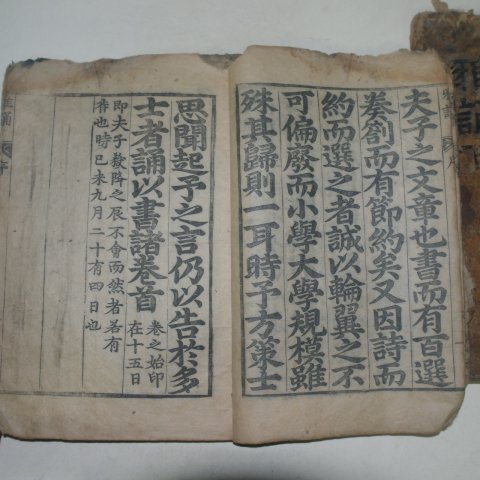 夫子之文章也書而有百選
奏劄而有節約矣又因詩而
約而選之者誠以輪翼之不
可偏廢而小學大學規模雖
殊其歸則一耳時予方策士
思聞起予之言仍以告於多
士者誦以書諸卷首
卷之始印
在十五日
即夫子嶽降之辰不會而然者若有
待也時己未九月二十有四日也
雅誦
序